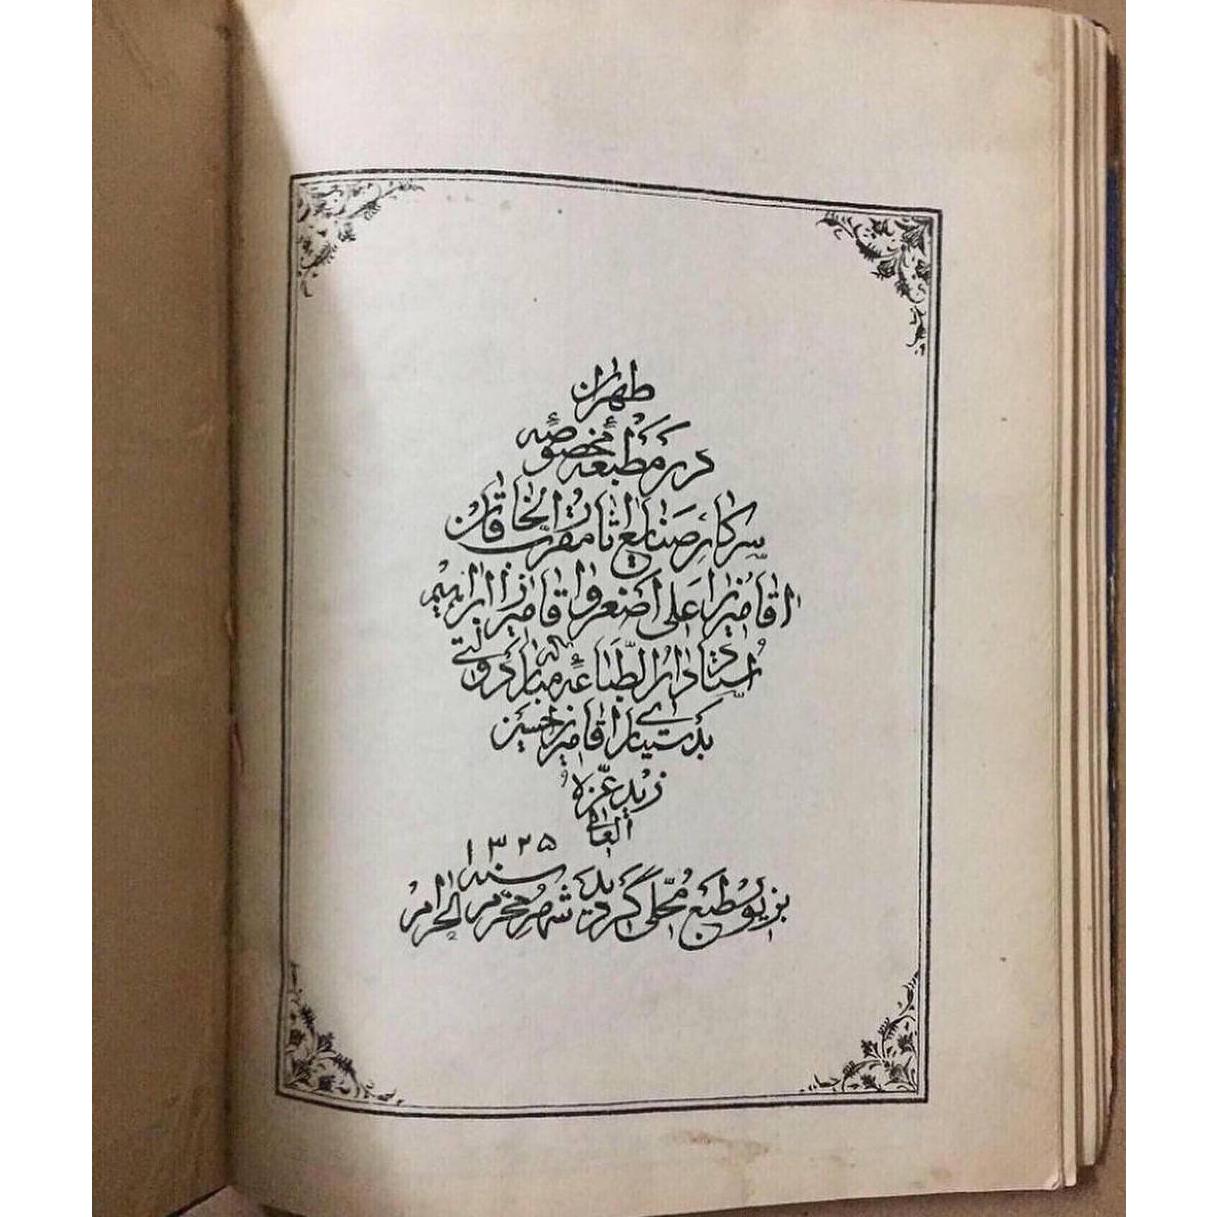 طهران
در مطبعه مخصوصه
سرکار صنایع اثار مقرب الخاقان
اقا میرزا علی اصغر و اقا میرزا ابراهیم
استاد دار الطباعه مبارکه دولتی
بدستیاری اقا میرزا حسین
زید عزه
العالی
۱۳۲۵
بزیور طبع محلی گردید شهر محرم الحرام سنه